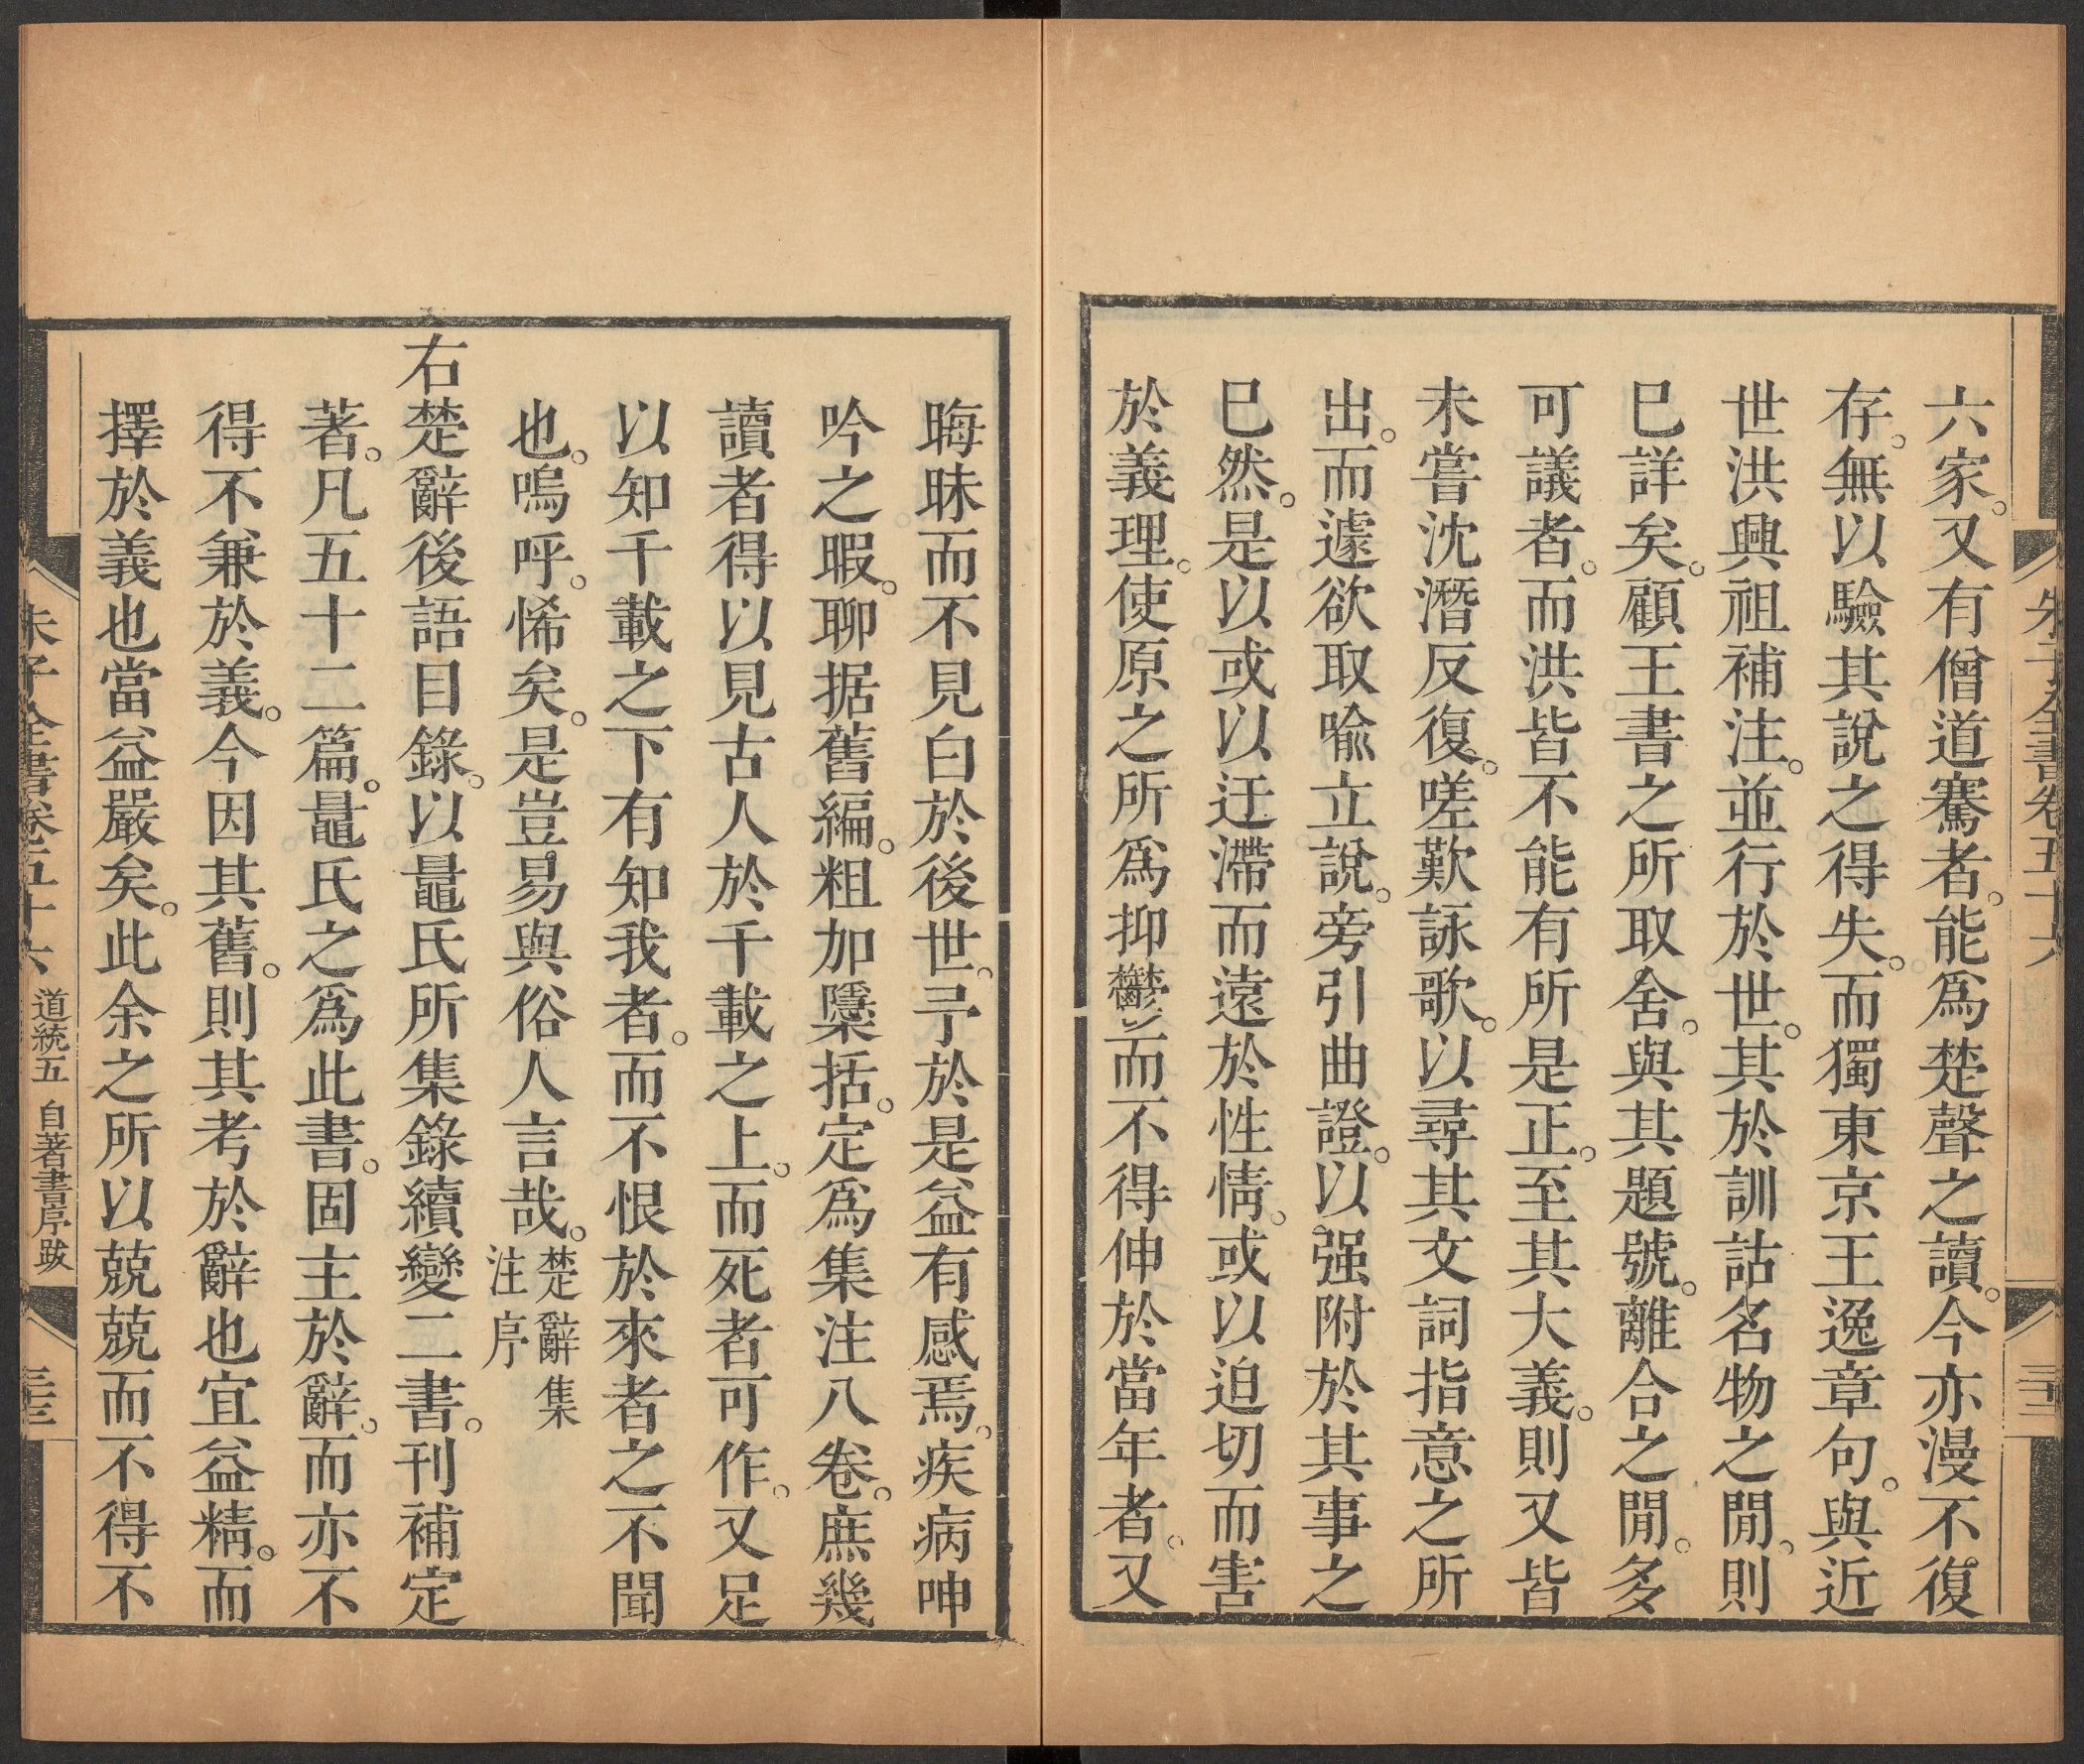 六家。又有僧道騫者。能爲楚聲之讀。今亦漫不復
存。無以驗其說之得失。而獨東京王逸章句。與近
世洪興祖補注。並行於世。其於訓詁名物之閒。則
已詳矣。顧王書之所取舍。與其題號。離合之閒。多
可議者。而洪皆不能有所是正。至其大義。則又皆
未嘗沈潛反復。嗟歎詠歌。以尋其文詞指意之所
出。而遽欲取喩立說。旁引曲證。以强附於其事之
已然。是以或以迂滯而遠於性情。或以迫切而害
於義理。使原之所爲抑鬱而不得伸於當年者。又
晦昧而不見白於後世。予於是益有感焉。疾病呻
吟之暇。聊据舊編。粗加櫽括。定爲集注八卷。庶幾
讀者得以見古人於千載之上。而死者可作。又足
以知千載之下有知我者。而不恨於來者之不聞
也。嗚呼。悕矣。是豈易與俗人言哉。楚辭集
注序
右楚辭後語目錄。以鼂氏所集錄續變二書。刊補定
著。凡五十二篇。鼂氏之爲此書。固主於辭。而亦不
得不兼於義。今因其舊。則其考於辭也宜益精。而
擇於義也當益嚴矣。此余之所以兢兢而不得不
朱子全書卷五十六 道統五 自著書序跋